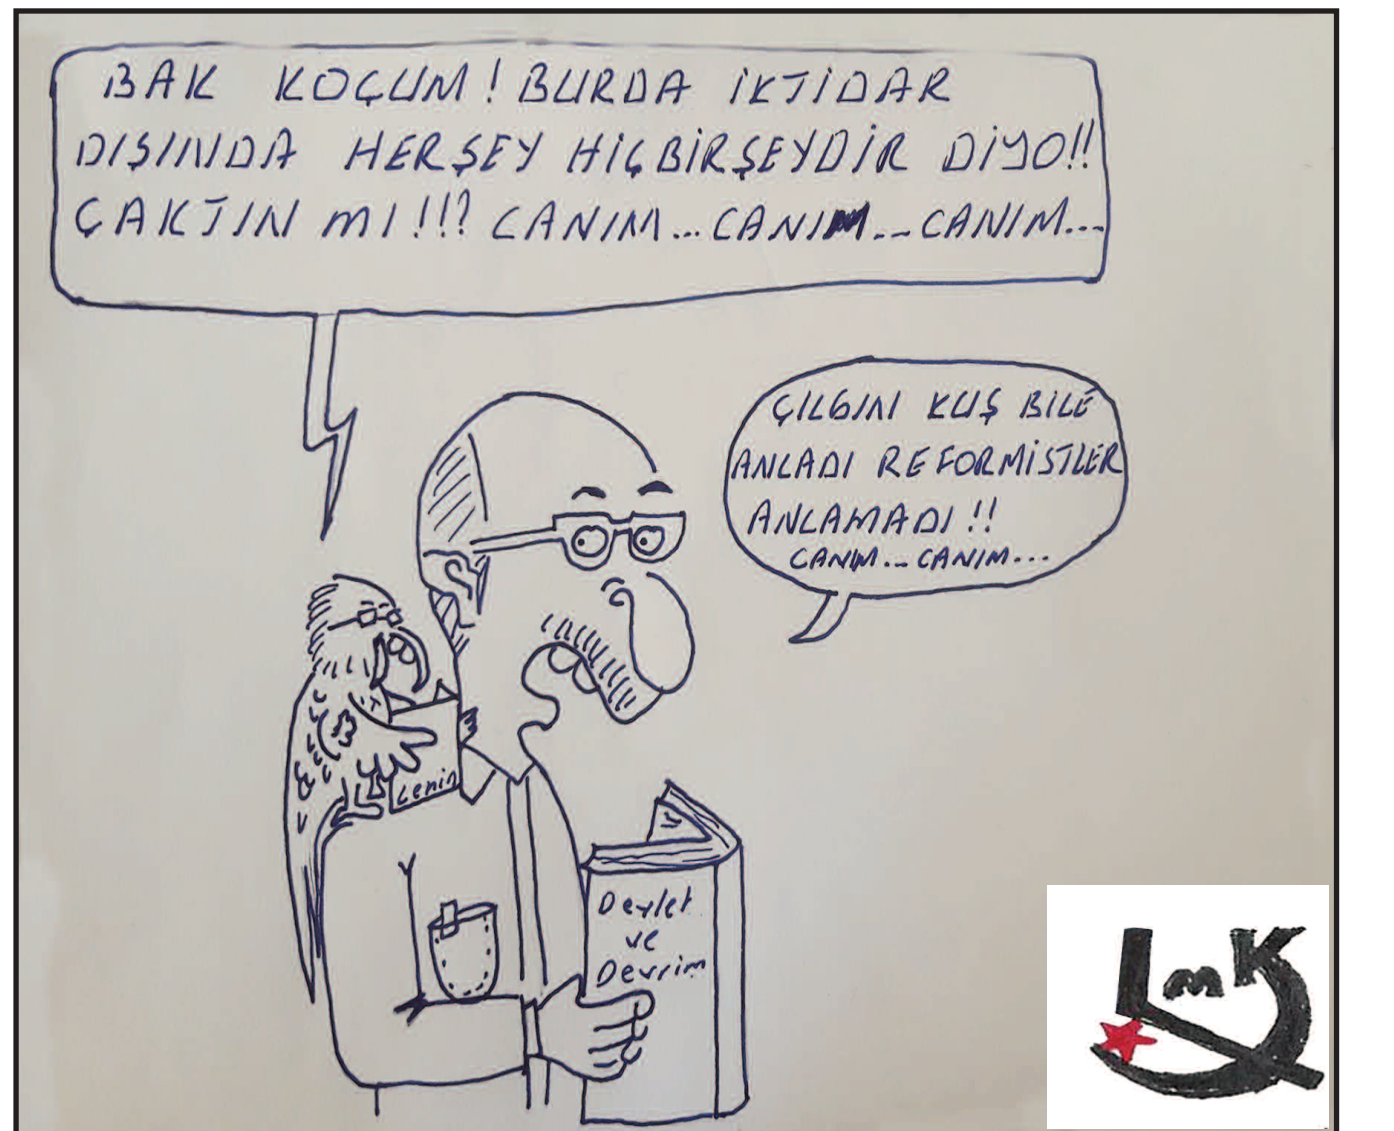 BAK KOÇUM! BURDA İKTİDAR
DIŞINDA HERŞEY HİÇBİRŞEYDİR DİYO!!
ÇAKTIN MI!!!? CANIM... CANIM... CANIM...
ÇILGIN KUŞ BİLE
ANLADI REFORMİSTLER
ANLAMADI!!
CANIM... CANIM...
Lenin
Devlet
ve
Devrim
LmK